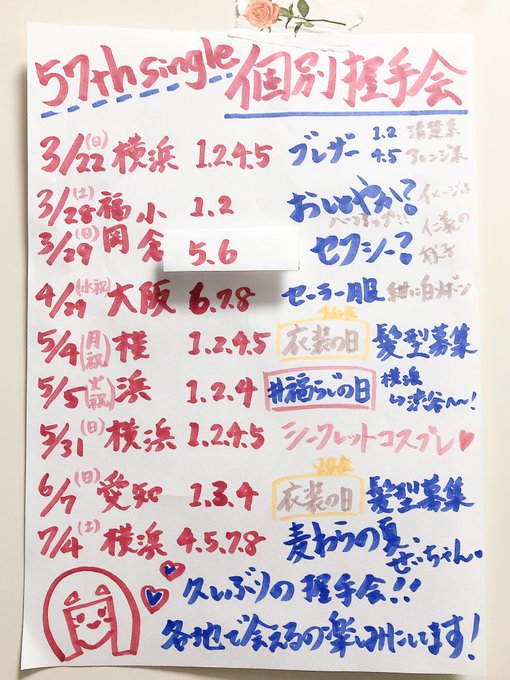 57th single 個別握手会
3/22(日) 横浜 1.2.4.5 ブレザー 1.2 清楚系
4.5 アレンジ系
3/28(土) 福 1.2 おしとやか?
3/29(日) 岡 5.6 セクシー?
4/29(水祝) 大阪 6.7.8 セーラー服 紺に白
5/4(月祝) 横 1.2.4.5 衣装の日 髪型募集
5/5(火祝) 浜 1.2.4 #福らじの日 横浜
↳渋谷へ〜!
5/31(日) 横浜 1.2.4.5 シークレットコスプレ♥
6/7(日) 愛知 1.3.4 衣装の日 髪型募集
7/4(土) 横浜 4.5.7.8 麦わらの夏、
ぜいちゃん。
久しぶりの握手会!!
各地で会えるの楽しみにしてます!